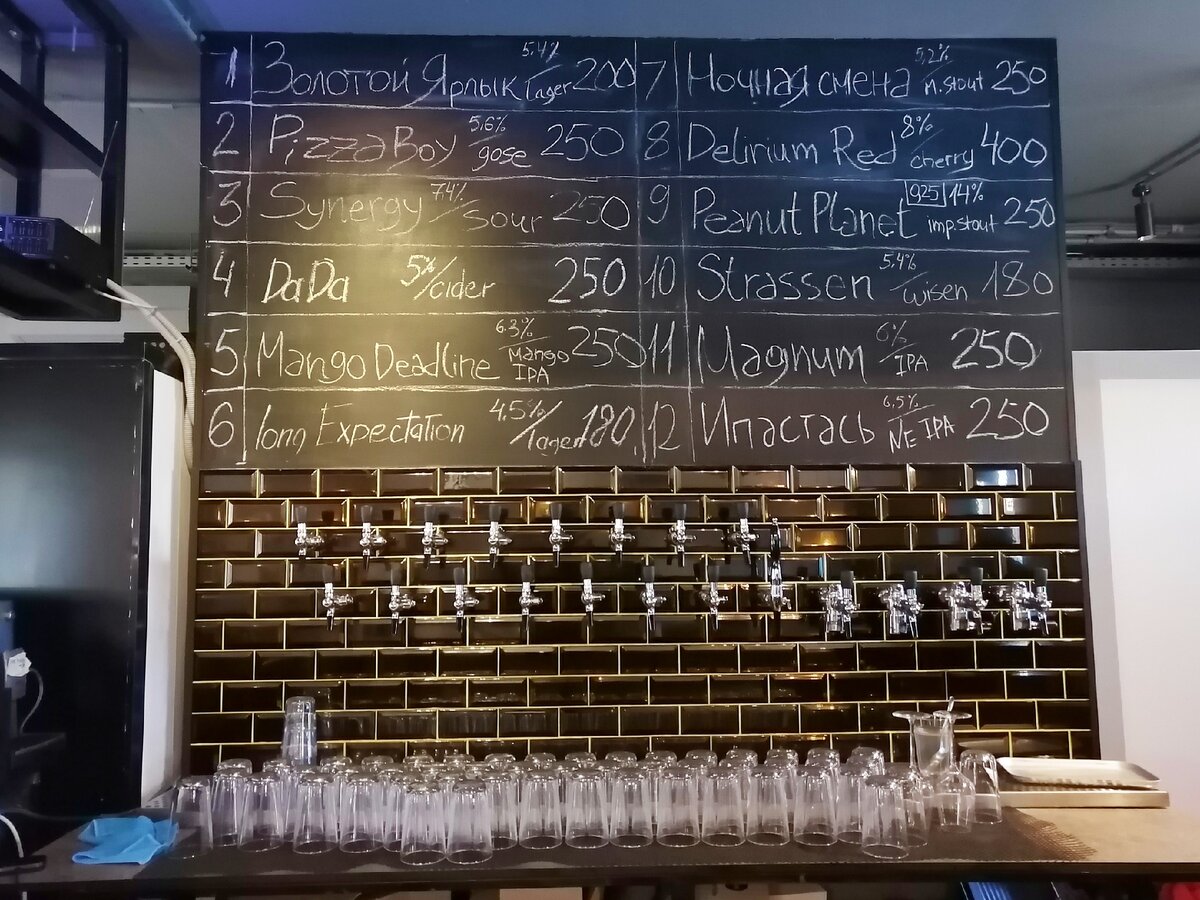 1 Золотой Ярлык 5,4% Lager 200
2 Pizza Boy 5,6% gose 250
3 Synergy 7.4% Sour 250
4 DaDa 5% cider 250
5 Mango Deadline 6.3% Mango IPA 250
6 long Expectation 4.5% lager 180
7 Ночная смена 5,2% m.stout 250
8 Delirium Red 8% cherry 400
9 Peanut Planet 0,25 14% imp.stout 250
10 Strassen 5,4% wisen 180
11 Magnum 6% IPA 250
12 Ипастась 6,5% NE IPA 250